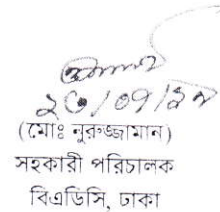 ২০/০৭/২০
(মোঃ নুরুজ্জামান)
সহকারী পরিচালক
বিএডিসি, ঢাকা